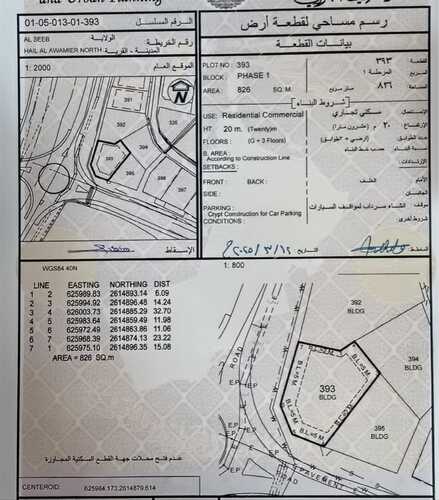 and Urban Planning
01-05-013-01-393
الرقم المسلسل
رسم مساحي لقطعة أرض
AL SEEB
الولاية
رقم الخريطة
HAIL AL AWAMIER NORTH
المدينة - القرية
بيانات القطعة
1: 2000
الموقع العام
PLOT NO : 393
٣٩٣
قطعة
BLOCK : PHASE 1
المرحلة ١
المربع
AREA : 826 SQ. M.
متر مربع
٨٢٦
المساحة
شروط البناء
USE : Residential Commercial
سكني تجاري
HT 20 m. (Twenty)m
٢٠ م (عشرون مترا)
الارتفاع
(G + 3 Floors)
عدد الطوابق
B. AREA : According to Construction Line
حسب خط البناء
SETBACKS:
الإرتدادات
FRONT : BACK :
الخلف
الأمام
SIDES :
الجانبان
PARKING : Crypt Construction for Car Parking
انشاء سرداب لمواقف السيارات
CONDITIONS:
شروط أخرى
391
392
394
393
395
الإسقاط
التاريخ
٢٠٢٥/٣/١٢
WGS84 40N
LINE EASTING NORTHING DIST
1 2 625989.83 2614893.14 6.09
2 3 625994.92 2614896.48 14.24
3 4 626003.73 2614885.29 32.70
4 5 625983.64 2614859.49 11.98
5 6 625972.49 2614863.86 11.06
6 7 625968.39 2614874.13 23.22
7 1 625975.10 2614896.35 15.08
AREA = 826 SQ.m
1: 800
392
BLDG
394
BLDG
393
BLDG
395
BLDG
B.L=5 M.
B.L=5 M.
ROAD
ROAD
E.P
E.P
E.P
E.P
PAVEMENT
عدم فتح محلات جهة القطع السكنية المجاورة
CENTEROID: 625984.173,2614879.614